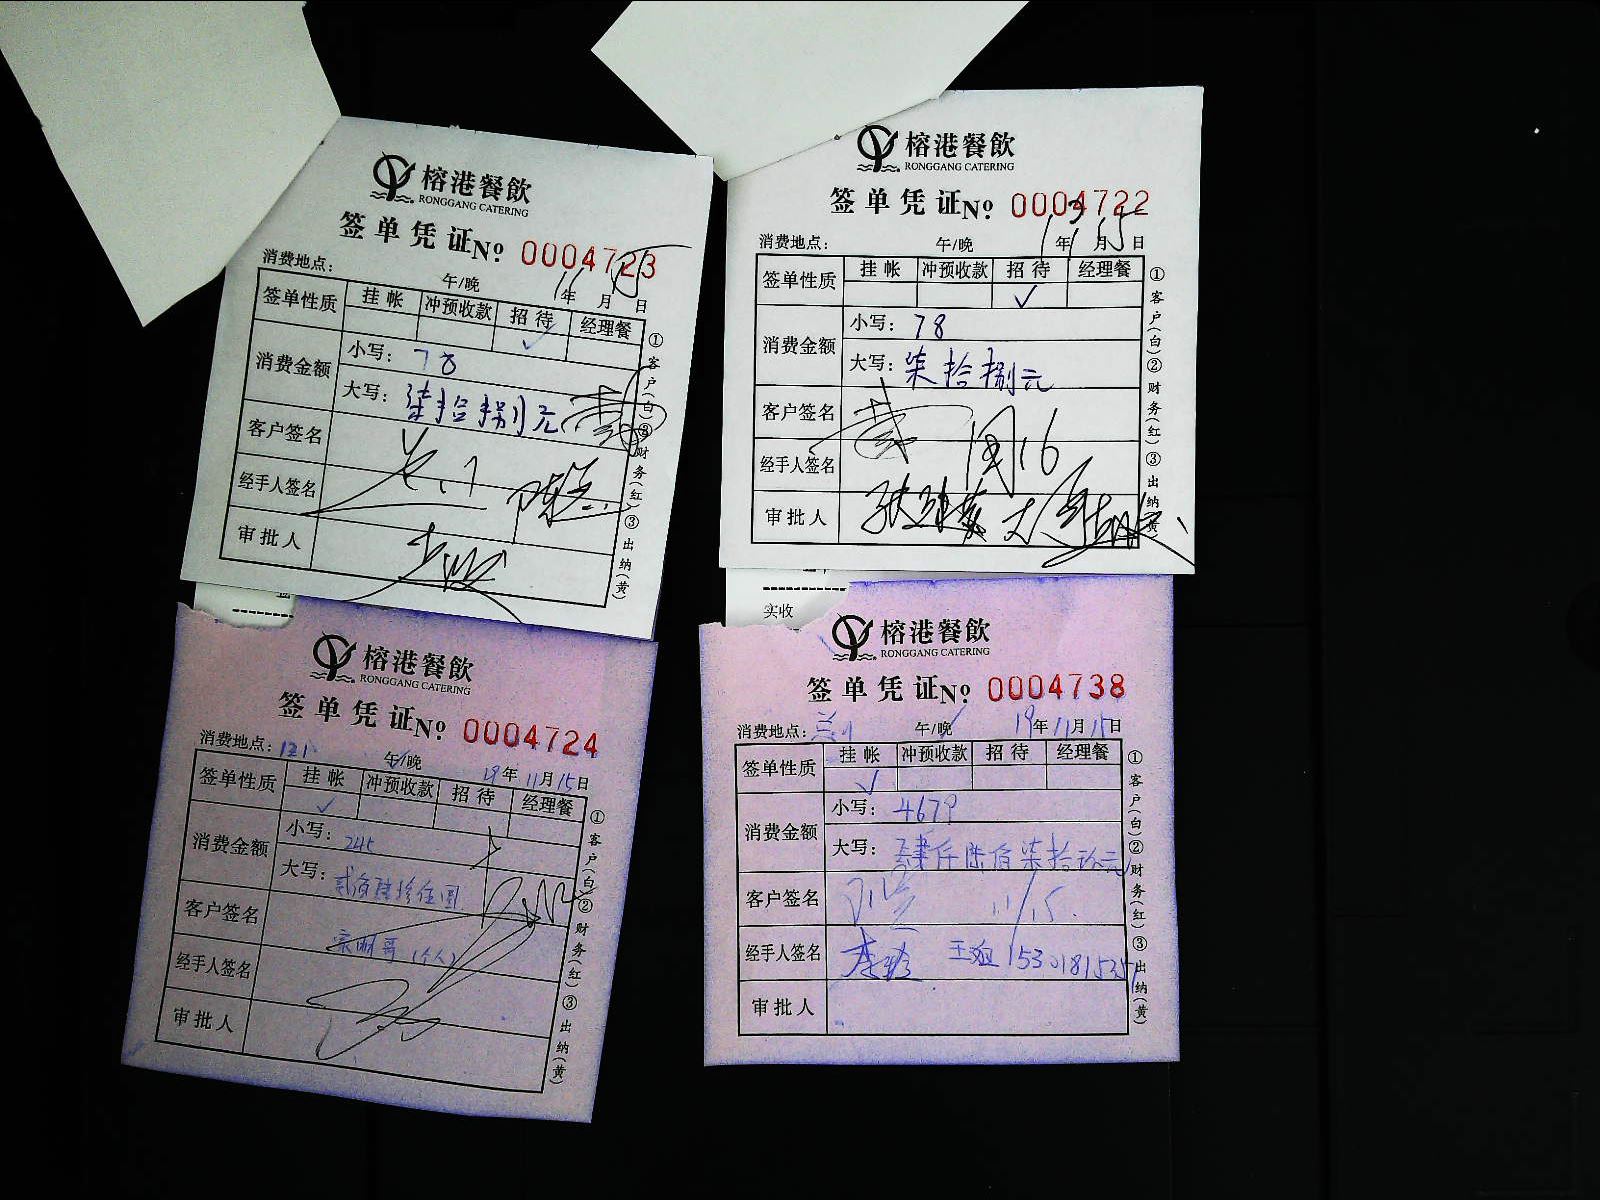 榕港餐飲
RONGGANG CATERING
签单凭证№ 0004723
消费地点： 午/晚 11年 月15日
签单性质 挂帐 冲预收款 招待 经理餐
✓
消费金额 小写：78
大写：柒拾捌元
客户签名
经手人签名
审批人
①客户(白)②财务(红)③出纳(黄)
榕港餐飲
RONGGANG CATERING
签单凭证№ 0004722
消费地点： 午/晚 年 月15日
签单性质 挂帐 冲预收款 招待 经理餐
✓
消费金额 小写：78
大写：柒拾捌元
客户签名
经手人签名
审批人
①客户(白)②财务(红)③出纳(黄)
榕港餐飲
RONGGANG CATERING
签单凭证№ 0004724
消费地点： 午/晚 19年11月15日
签单性质 挂帐 冲预收款 招待 经理餐
✓
消费金额 小写：
大写：
客户签名
经手人签名
审批人
①客户(白)②财务(红)③出纳(黄)
实收
榕港餐飲
RONGGANG CATERING
签单凭证№ 0004738
消费地点： 午/晚 19年11月15日
签单性质 挂帐 冲预收款 招待 经理餐
✓
消费金额 小写：4679
大写：肆仟陆佰柒拾玖元
客户签名 11/15.
经手人签名
审批人
①客户(白)②财务(红)③出纳(黄)